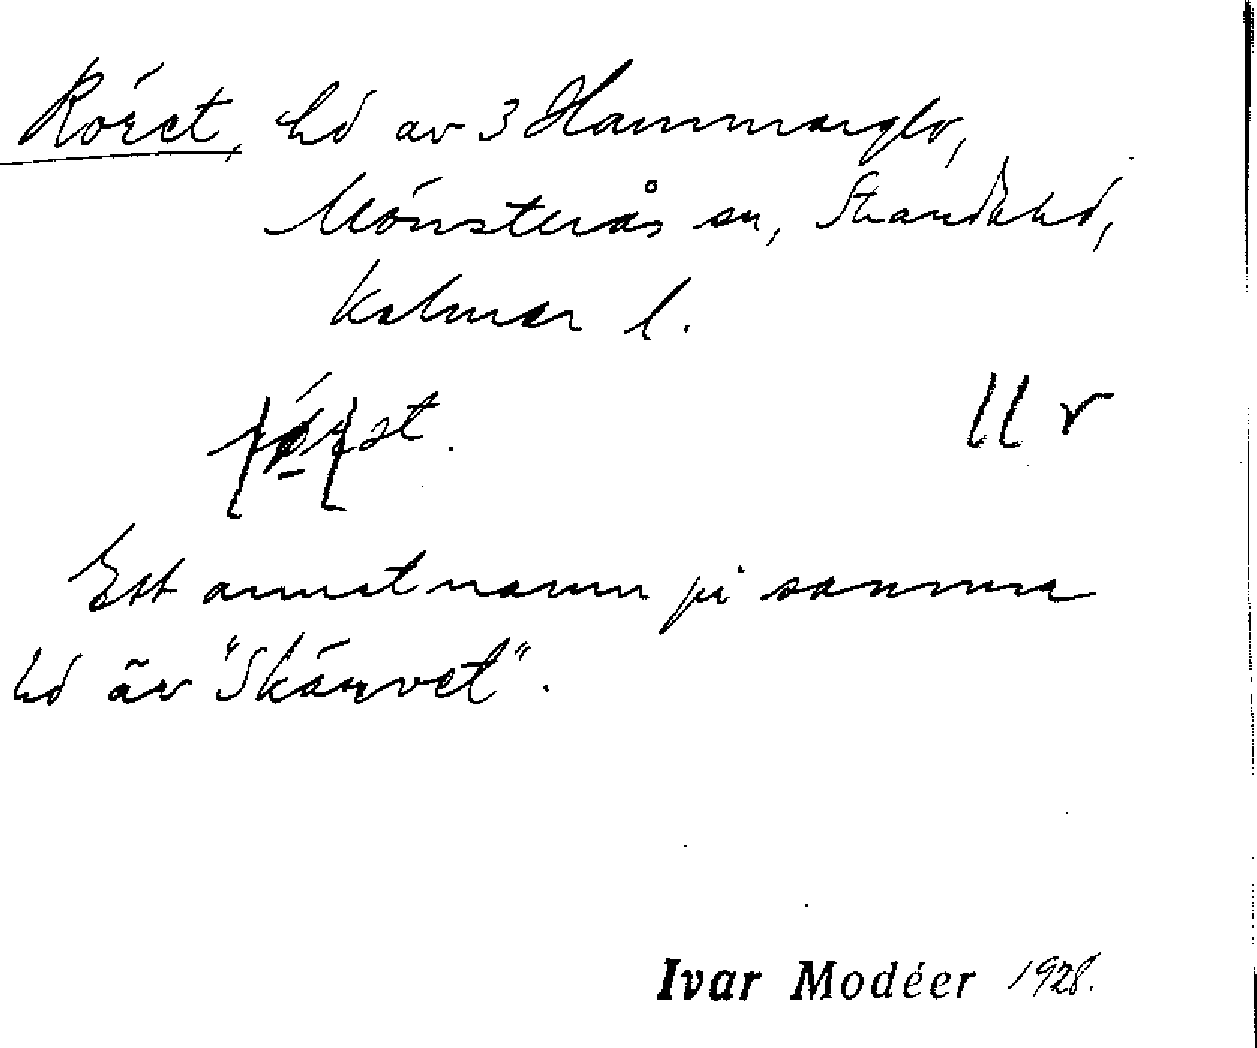 Röret, hd av 3 Hammarglo,
Mönsterås sn, Stranda hd,
Kalmar l.
ll r
Ett annat namn på samma
hd är "Skärvet".
Ivar Modéer 1928.